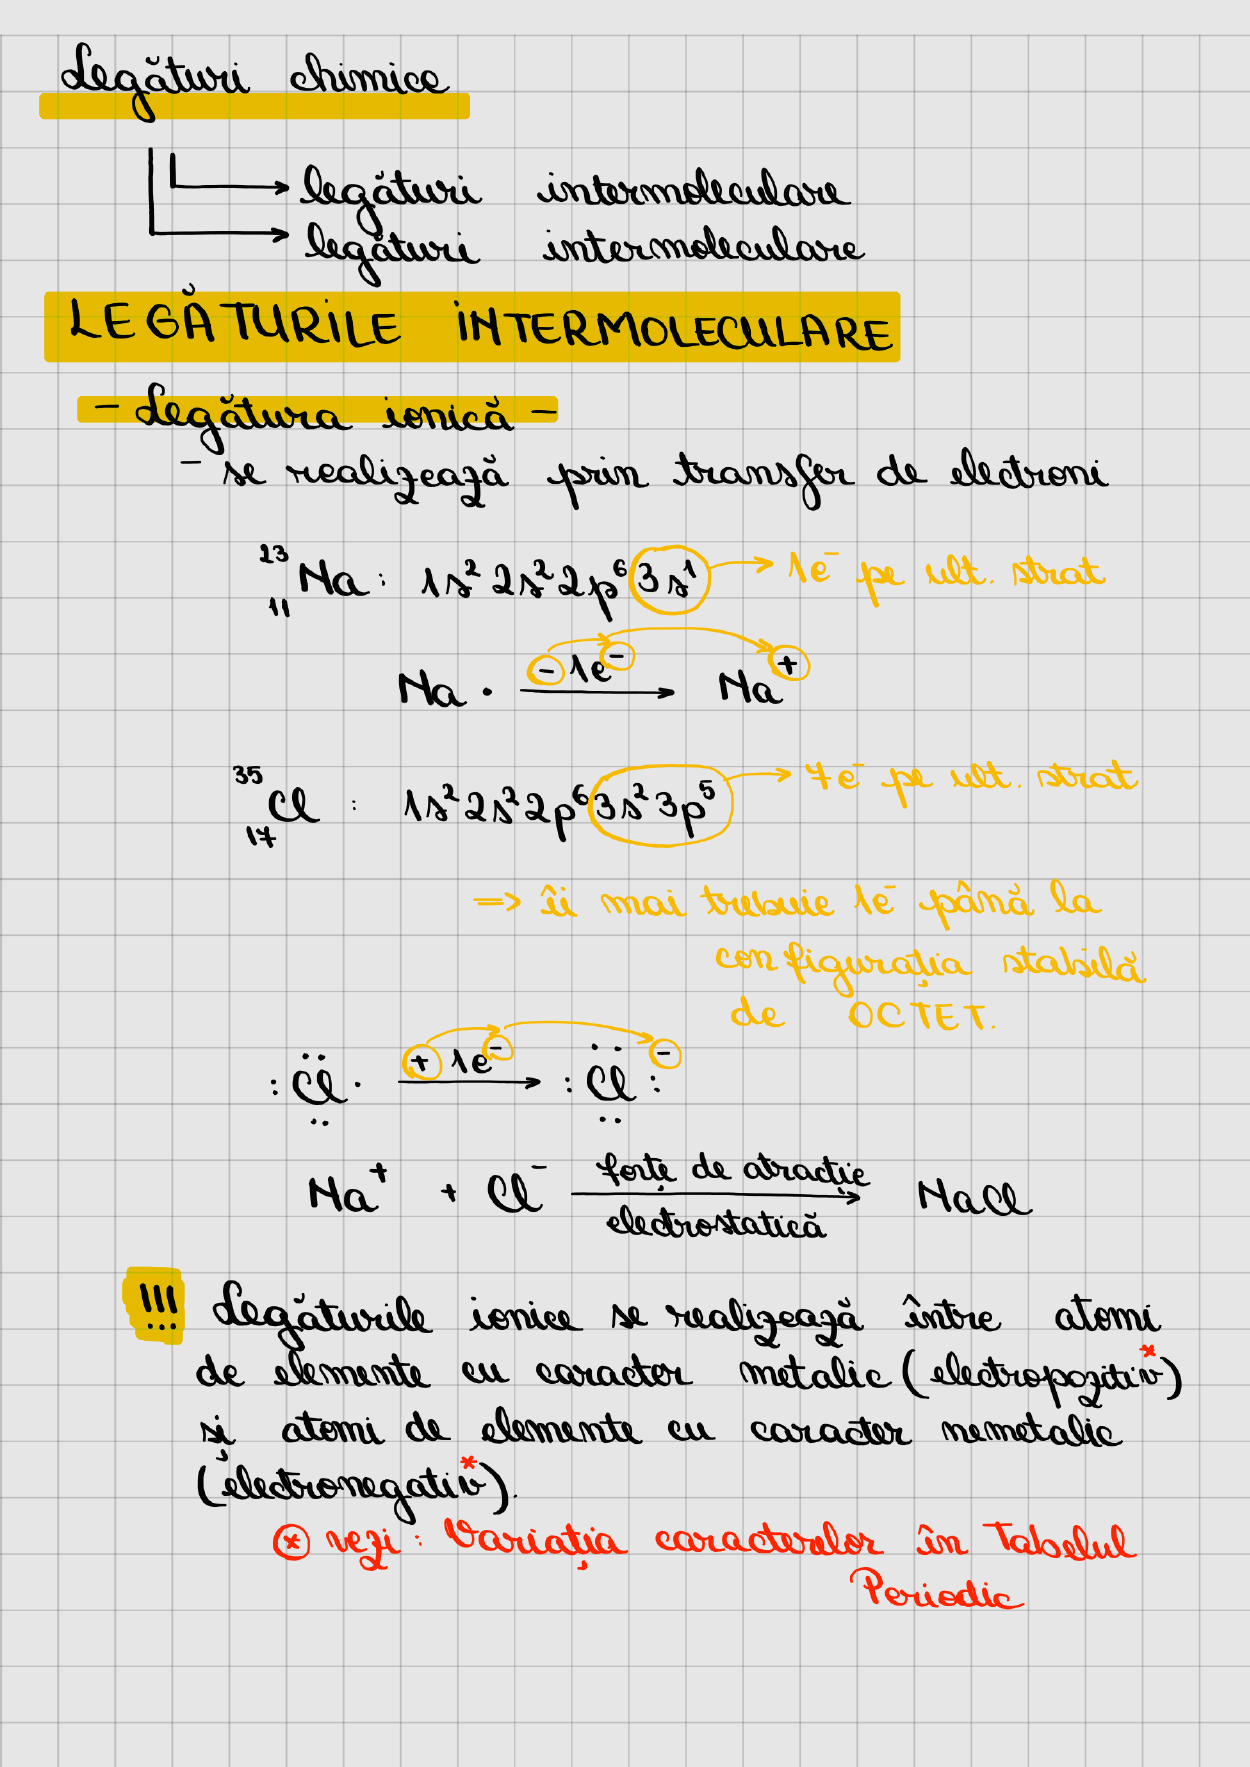 Legături chimice
legături intermoleculare
legături intermoleculare
LEGĂTURILE INTERMOLECULARE
- Legătura ionică -
- se realizează prin transfer de electroni
²³₁₁Na : 1s² 2s² 2p⁶ 3s¹ → 1e⁻ pe ult. strat
Na · −1e⁻ → Na⁺
³⁵₁₇Cl : 1s² 2s² 2p⁶ 3s² 3p⁵ → 7e⁻ pe ult. strat
=> îi mai trebuie 1e⁻ până la
configurația stabilă
de OCTET.
:Cl· +1e⁻ → :Cl:⁻
Na⁺ + Cl⁻ forțe de atracție → NaCl
electrostatică
!!! Legăturile ionice se realizează între atomi
de elemente cu caracter metalic (electropozitiv*)
și atomi de elemente cu caracter nemetalic
(electronegativ*).
⊛ vezi : Variația caracterelor în Tabelul
Periodic